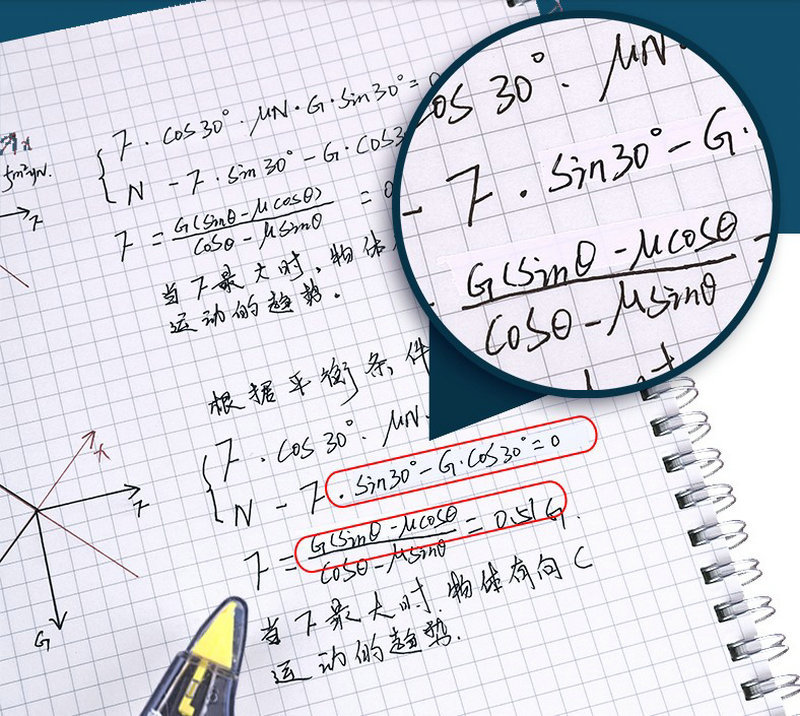 fm=μN.
F
F · cos30° · μN · G · sin30° =
N - F · sin30° - G · cos3
F = G(sinθ - μcosθ) / cosθ - μsinθ =
当F最大时, 物体
运动的趋势.
cos 30° · μN
- F · sin30° - G ·
G(sinθ - μcosθ
cosθ - μsinθ
根据平衡条件
F · cos30° · μN
N - F · sin30° - G · cos30° = 0
F = G(sinθ - μcosθ / cosθ - μsinθ = 0.51 G.
当F最大时 物体有向C
运动的趋势.
x
F
G